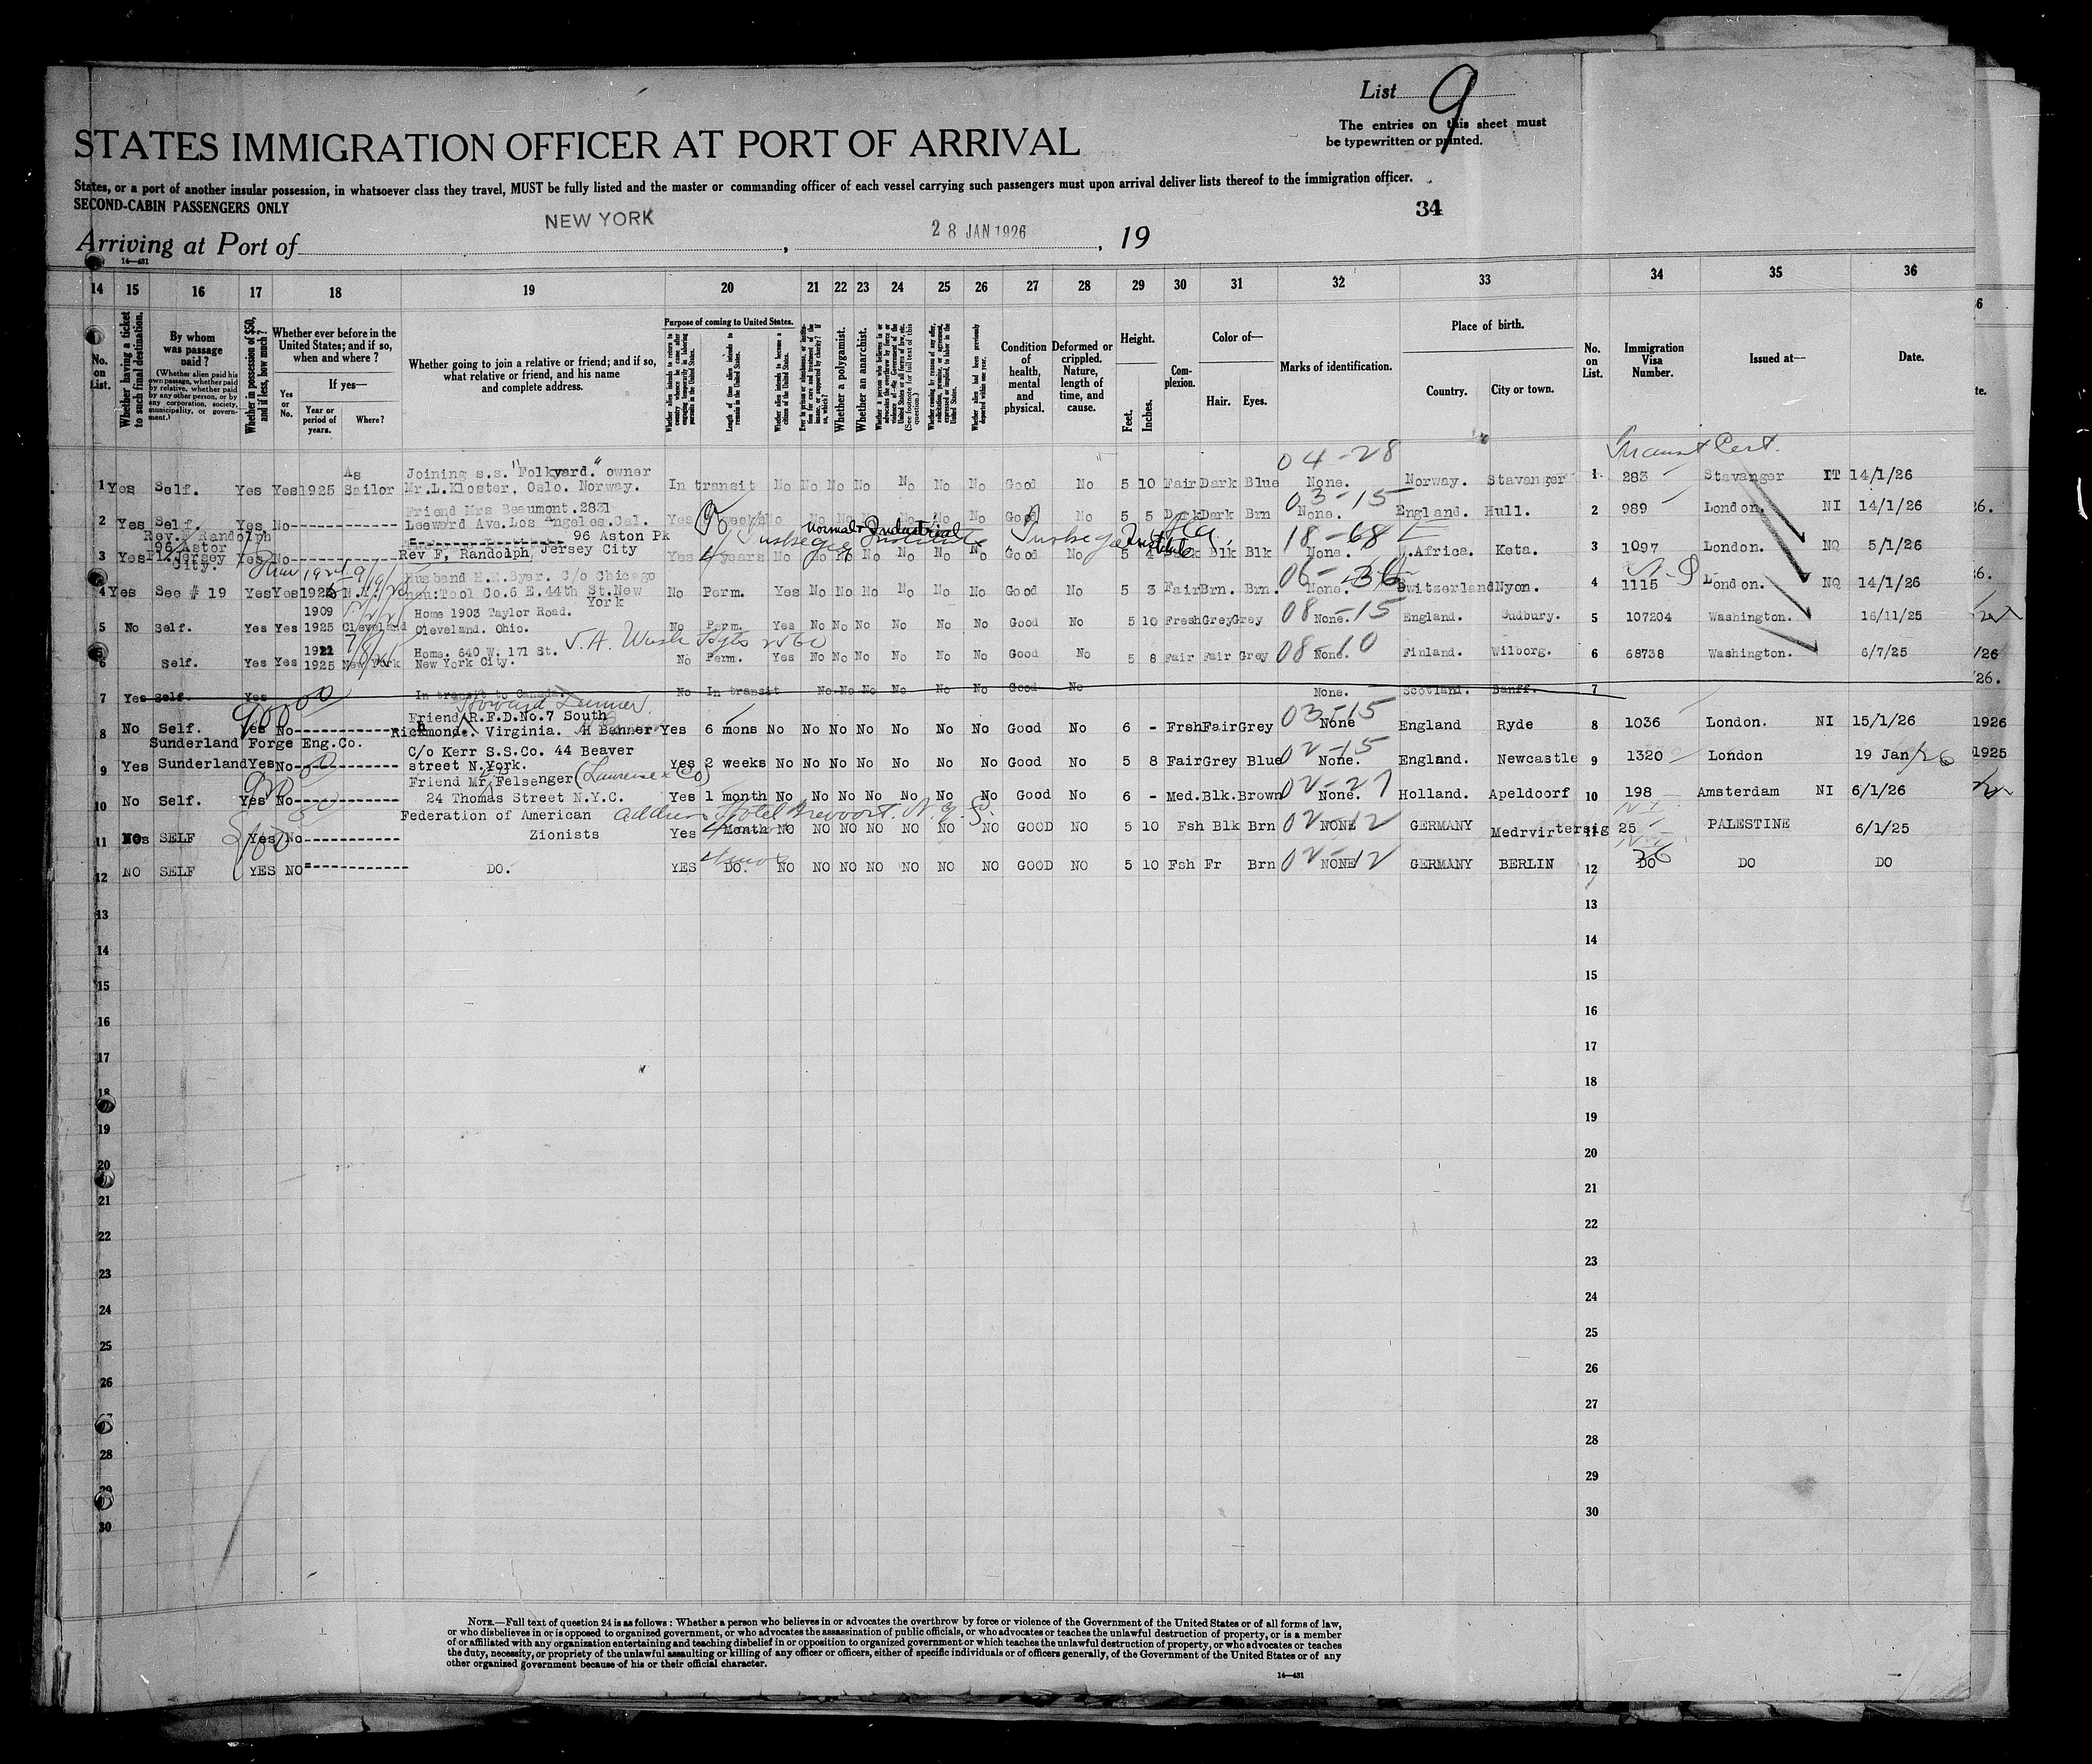 List 9
The entries on this sheet must
be typewritten or printed.
STATES IMMIGRATION OFFICER AT PORT OF ARRIVAL
States, or a port of another insular possession, in whatsoever class they travel, MUST be fully listed and the master or commanding officer of each vessel carrying such passengers must upon arrival deliver lists thereof to the immigration officer.
SECOND-CABIN PASSENGERS ONLY
34
Arriving at Port of NEW YORK, 28 JAN 1926, 19
14—431
14 15 16 17 18 19 20 21 22 23 24 25 26 27 28 29 30 31 32 33 34 35 36
No. on List.
Whether having a ticket to such final destination.
By whom was passage paid?
(Whether alien paid his own passage, whether paid by relative, whether paid by any other person, or by any corporation, society, municipality, or government.)
Whether in possession of $50, and if less, how much?
Whether ever before in the United States; and if so, when and where?
Yes or No.
If yes—
Year or period of years.
Where?
Whether going to join a relative or friend; and if so, what relative or friend, and his name and complete address.
Purpose of coming to United States.
Whether alien intends to return to country whence he came after engaging temporarily in laboring pursuits in the United States.
Length of time alien intends to remain in the United States.
Whether alien intends to become a citizen of the United States.
Whether a polygamist.
Whether an anarchist.
(See footnote for full text of this question.)
Whether alien had been previously deported within one year.
Condition of health, mental and physical.
Deformed or crippled. Nature, length of time, and cause.
Height.
Feet. Inches.
Complexion.
Color of—
Hair. Eyes.
Marks of identification.
Place of birth.
Country. City or town.
No. on List.
Immigration Visa Number.
Issued at—
Date.
Transit Cert.
04-28
As Joining s.s. "Folkvard." owner
1 Yes Self. Yes Yes 1925 Sailor Mr.L.Kloster, Oslo. Norway. In transit No No No No No No No Good No 5 10 Fair Dark Blue None. Norway. Stavanger 1 283 Stavanger IT 14/1/26
03-15
Friend Mrs Beaumont.2831
2 Yes Self. Yes No Leeward Ave.Los Angeles.Cal. Yes weeks No No No No No No No Good No 5 5 Dark Dark Brn None. England. Hull. 2 989 London. NI 14/1/26
Rev.F Randolph 96 Aston Pk
Normal & Industrial Tuskegee Institute Tuskegee Ala.
96 Astor
18-68
3 Yes Pl.Jersey Yes No Rev F, Randolph, Jersey City Yes 4 years No No No No No No No Good No 5 4 Blk Blk None. W.Africa. Keta. 3 1097 London. NQ 5/1/26
City.
06-36
Husband H.E.Byer. C/o Chicago
4 Yes See # 19 Yes Yes 1925 N.Y. Tool Co.6 E.44th St.New York No Perm. Yes No No No No No No Good No 5 3 Fair Brn. Brn. None. Switzerland Nyon. 4 1115 London. NQ 14/1/26
1909 Home 1903 Taylor Road. 08-15
5 No Self. Yes Yes 1925 Cleveland Cleveland. Ohio. No Perm. Yes No No No No No No Good No 5 10 Fresh Grey Grey None. England. Sudbury. 5 107204 Washington. 16/11/25
1921 Home. 640 W. 171 St. 08-10
6 Self. Yes Yes 1925 New York New York City. No Perm. Yes No No No No No No Good No 5 8 Fair Fair Grey None. Finland. Wilborg. 6 68738 Washington. 6/7/25
7 Yes Self. Yes In transit to Canada. No In transit No No No No No No Good No None. Scotland. Banff. 7
Friend R.F.D.No.7 South 03-15
8 No Self. Yes No Richmond. Virginia. H Banner Yes 6 mons No No No No No No No Good No 6 - Frsh Fair Grey None England Ryde 8 1036 London. NI 15/1/26
Sunderland Forge Eng.Co. C/o Kerr S.S.Co. 44 Beaver 02-15
9 Yes Sunderland Yes No street N.York. Yes 2 weeks No No No No No No No Good No 5 8 Fair Grey Blue None. England. Newcastle 9 1320 London 19 Jan/26
Friend Mr Felsenger 02-27
10 No Self. Yes No 24 Thomas Street N.Y.C. Yes 1 month No No No No No No No Good No 6 - Med. Blk. Brown None. Holland. Apeldoorf 10 198 Amsterdam NI 6/1/26
Federation of American address Hotel Brevoort. N.Y.C. 02-12
11 SELF Yes No Zionists Yes Month NO NO NO NO NO NO NO GOOD NO 5 10 Fsh Blk Brn NONE GERMANY Medrvirtersig 25 PALESTINE 6/1/25
02-12
12 NO SELF YES NO DO. YES DO. NO NO NO NO NO NO NO GOOD NO 5 10 Fsh Fr Brn NONE GERMANY BERLIN 12 DO 26 DO DO
13 13
14 14
15 15
16 16
17 17
18 18
19 19
20 20
21 21
22 22
23 23
24 24
25 25
26 26
27 27
28 28
29 29
30 30
NOTE.—Full text of question 24 is as follows: Whether a person who believes in or advocates the overthrow by force or violence of the Government of the United States or of all forms of law,
or who disbelieves in or is opposed to organized government, or who advocates the assassination of public officials, or who advocates or teaches the unlawful destruction of property, or is a member
of or affiliated with any organization entertaining and teaching disbelief in or opposition to organized government or which teaches the unlawful destruction of property, or who advocates or teaches
the duty, necessity, or propriety of the unlawful assaulting or killing of any officer or officers, either of specific individuals or of officers generally, of the Government of the United States or of any
other organized government because of his or their official character.
14—431